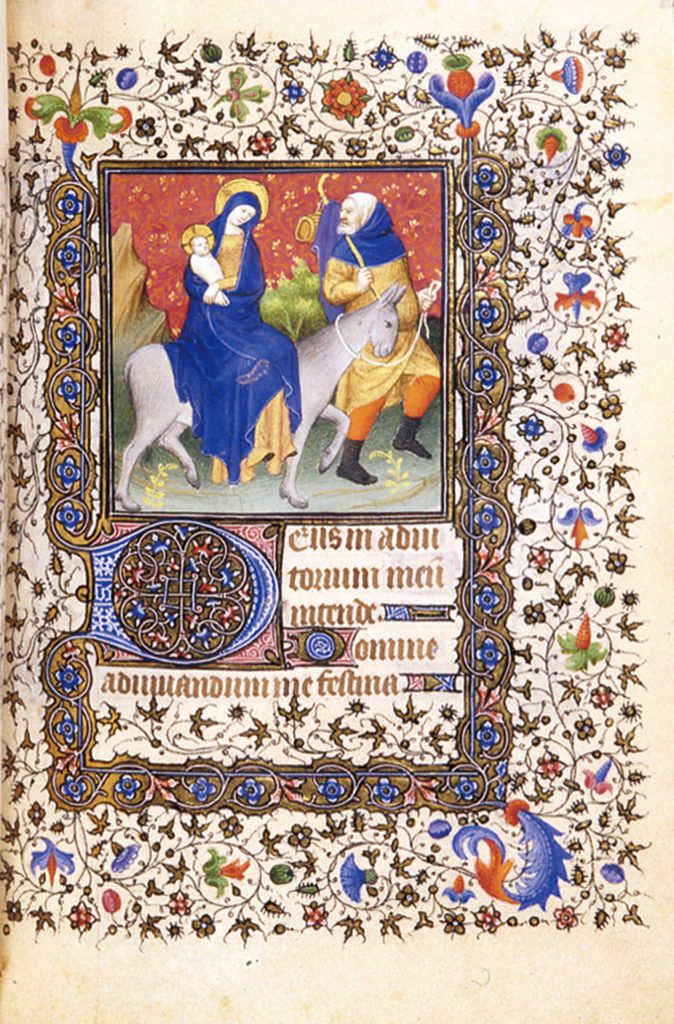 Deus in adiu
torium meū
intende.
Domine
adiuuandum me festina